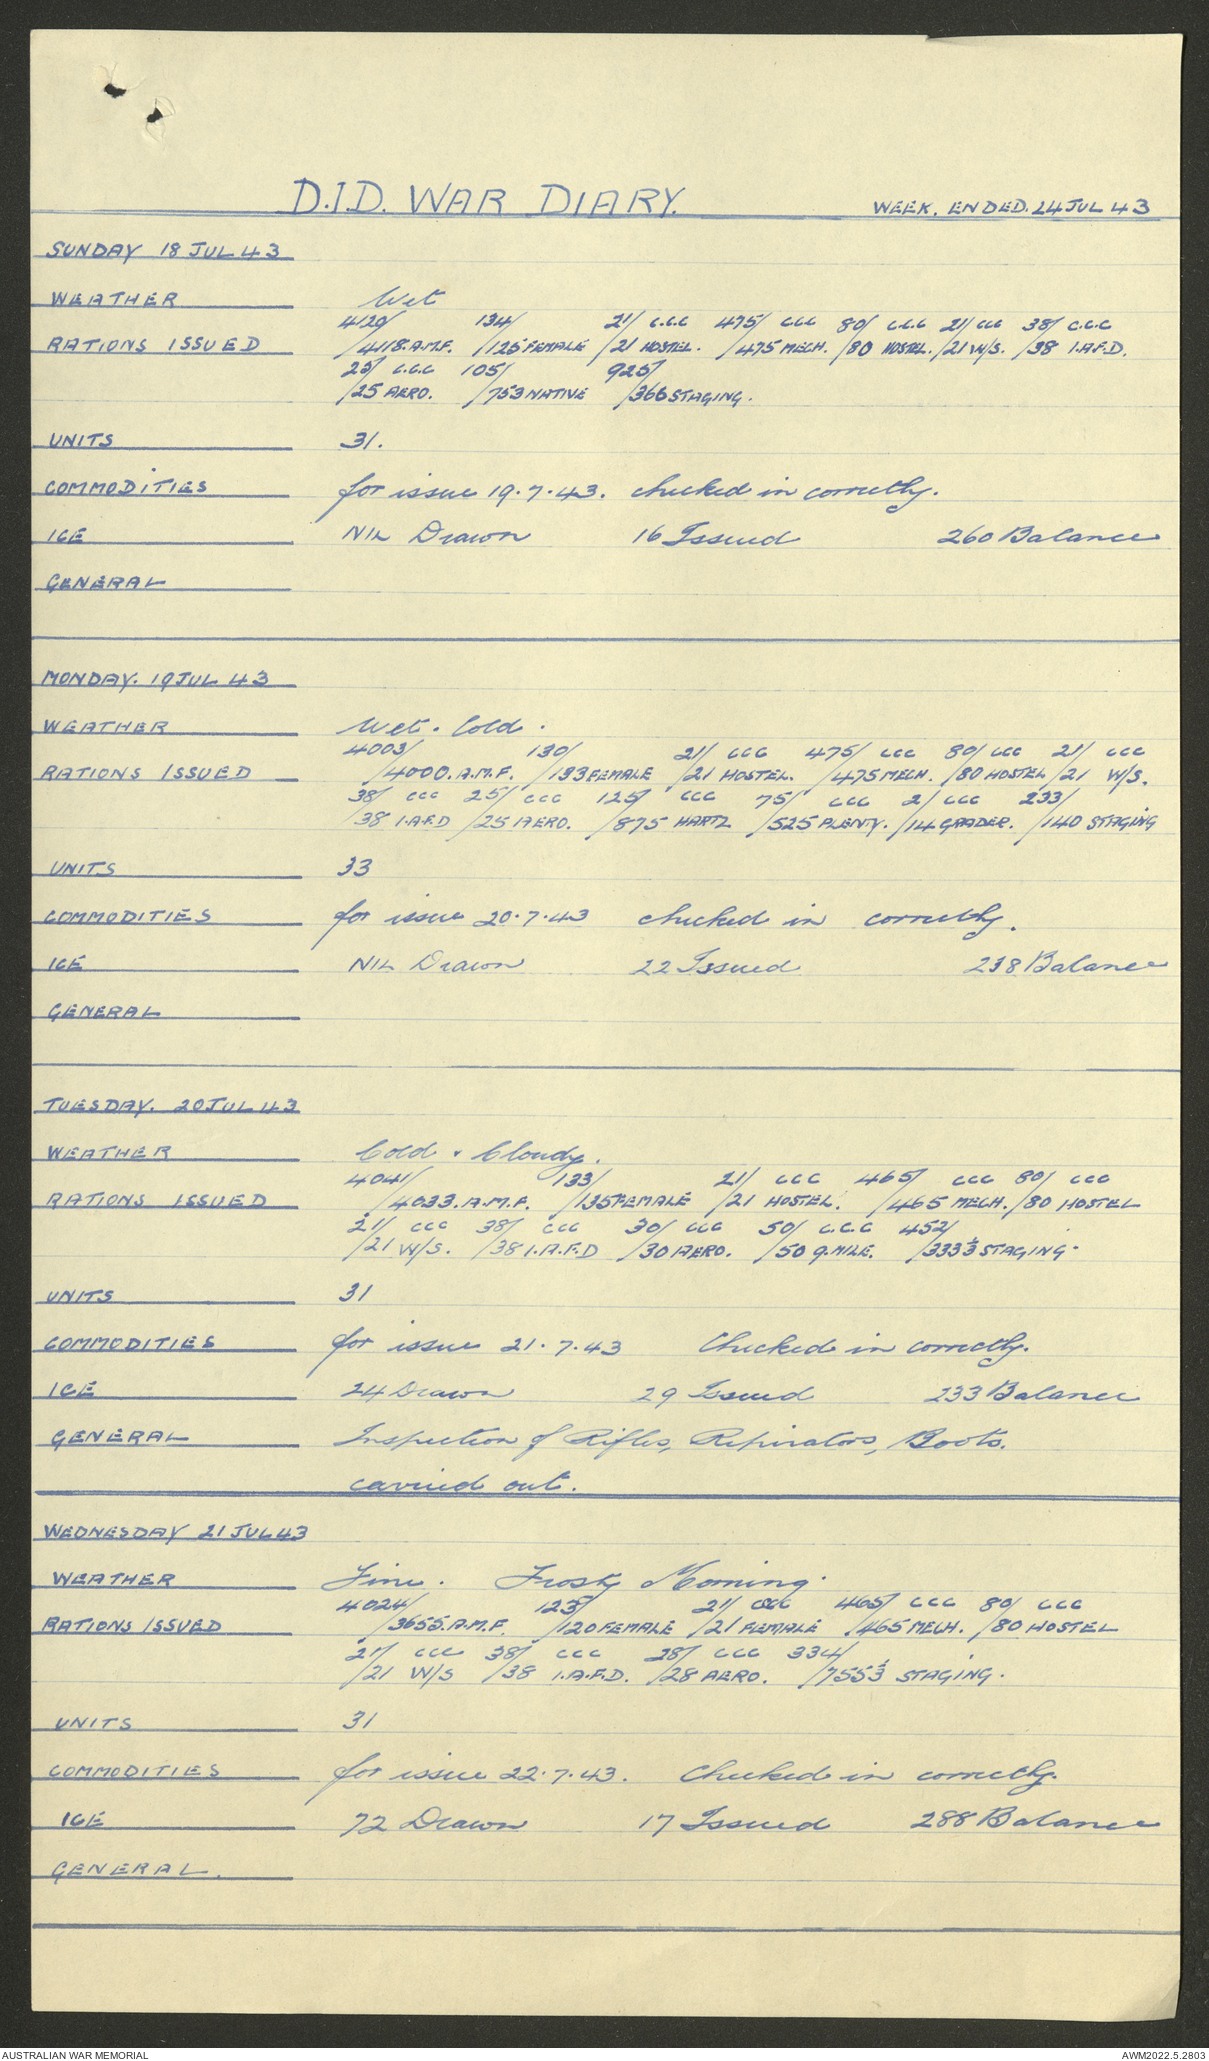 D.I.D. WAR DIARY. WEEK. ENDED. 24 JUL 43
SUNDAY 18 JUL 43
WEATHER Wet
4120/ 134/ 21/ C.C.C 475/ CCC 80/ C.C.C 21/ CCC 38/ C.C.C
RATIONS ISSUED /4118. A.M.F. /125 FEMALE /21 HOSTEL. /475 MECH. /80 HOSTEL. /21 W/S. /38 I.A.F.D.
25/ C.C.C 105/ 925/
/25 AERO. /753 NATIVE /366 STAGING.
UNITS 31.
COMMODITIES for issue 19.7.43. checked in correctly.
ICE NIL Drawn 16 Issued 260 Balance
GENERAL
MONDAY. 19 JUL 43
WEATHER Wet. Cold.
4003/ 130/ 21/ CCC 475/ CCC 80/ CCC 21/ CCC
RATIONS ISSUED /4000. A.M.F. /133 FEMALE /21 HOSTEL. /475 MECH. /80 HOSTEL /21 W/S.
38/ CCC 25/ CCC 125/ CCC 75/ CCC 2/ CCC 233/
/38 I.A.F.D /25 AERO. /875 HARTZ /525 PLENTY. /14 GRADER. /140 STAGING
UNITS 33
COMMODITIES for issue 20.7.43 checked in correctly.
ICE NIL Drawn 22 Issued 238 Balance
GENERAL
TUESDAY. 20 JUL 43
WEATHER Cold & Cloudy.
4041/ 133/ 21/ CCC 465/ CCC 80/ CCC
RATIONS ISSUED /4033. A.M.F. /135 FEMALE /21 HOSTEL. /465 MECH. /80 HOSTEL
21/ CCC 38/ CCC 30/ CCC 50/ C.C.C 452/
/21 W/S. /38 I.A.F.D /30 AERO. /50 9. MILE. /333⅓ STAGING.
UNITS 31
COMMODITIES for issue 21.7.43 Checked in correctly.
ICE 24 Drawn 29 Issued 233 Balance
GENERAL Inspection of Rifles, Repirators, Boots.
carried out.
WEDNESDAY 21 JUL 43
WEATHER Fine. Frosty Morning.
4024/ 123/ 21/ CCC 465/ CCC 80/ CCC
RATIONS ISSUED /3655. A.M.F. /120 FEMALE /21 FEMALE /465 MECH. /80 HOSTEL
21/ CCC 38/ CCC 28/ CCC 334/
/21 W/S /38 I.A.F.D. /28 AERO. /755⅓ STAGING.
UNITS 31
COMMODITIES for issue 22.7.43. Checked in correctly.
ICE 72 Drawn 17 Issued 288 Balance
GENERAL.
AUSTRALIAN WAR MEMORIAL AWM2022.5.2803